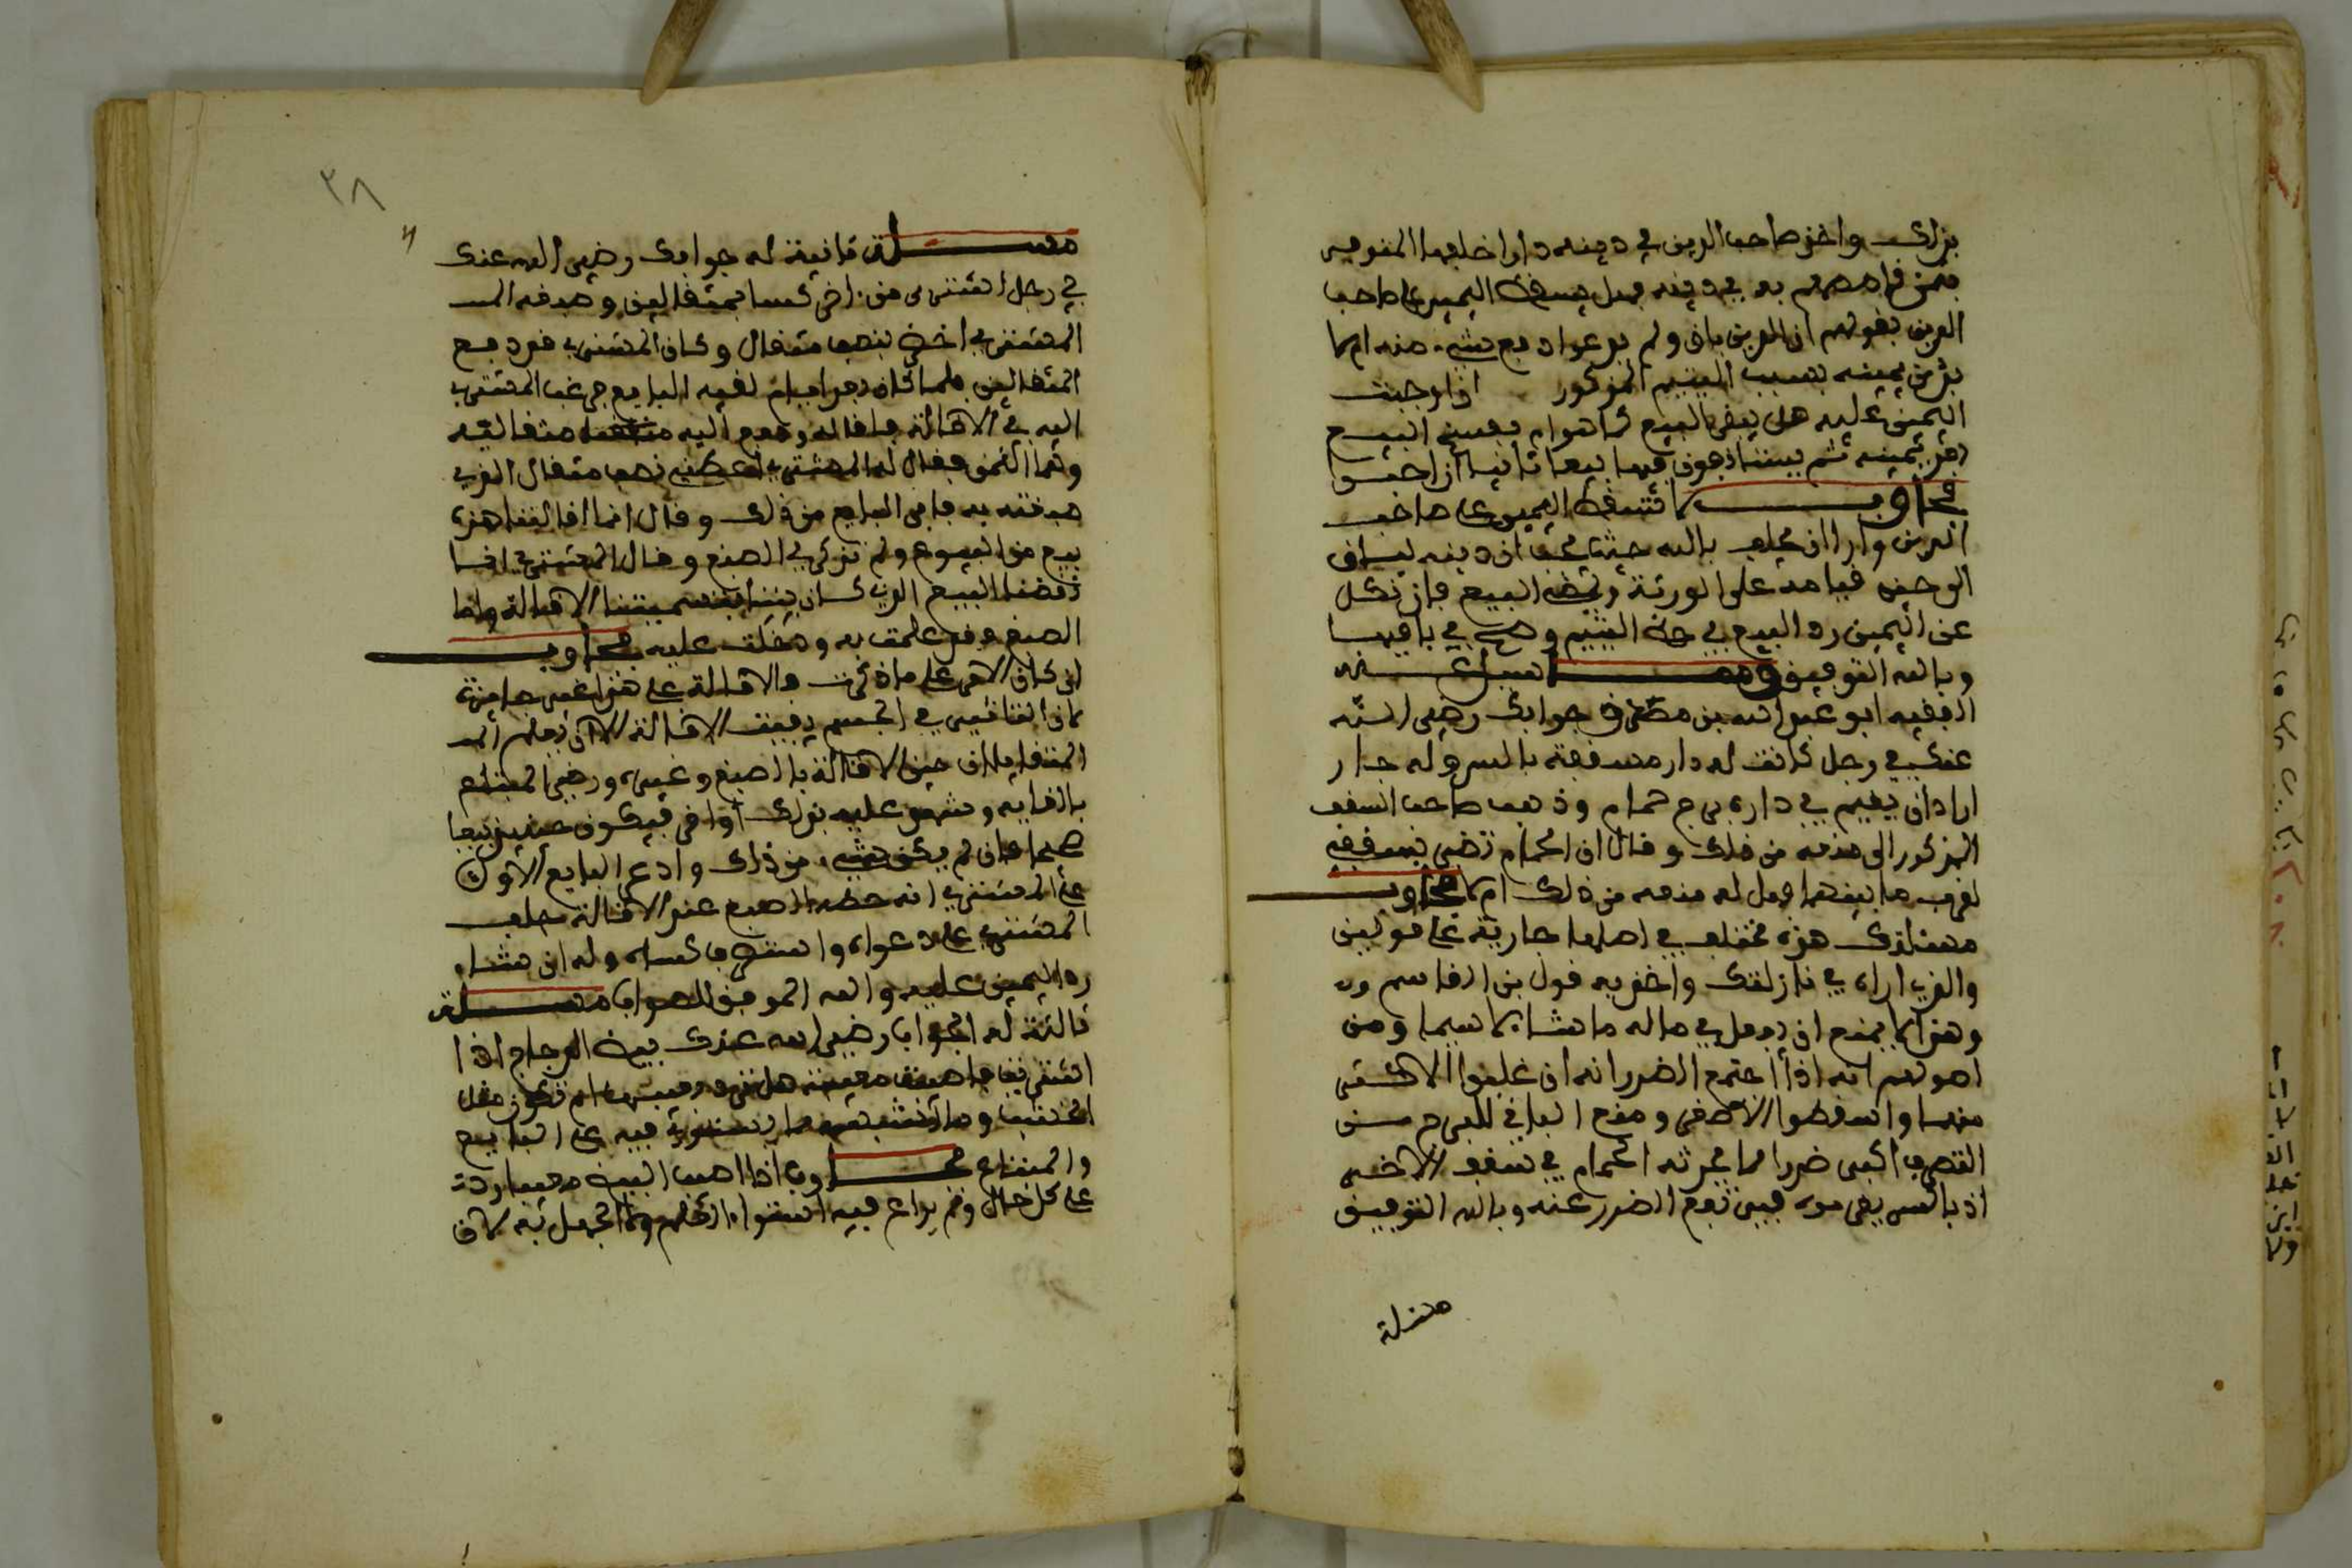 بذلك واخذ صاحب الدين في دينه دارا خلفها المتوفى
بثمن قاصصهم به في دينه فهل يسقط اليمين على صاحب
الدين بقولهم ان الدين باق ولم يدعوا دفع شيء منه ام لا
بد من يمينه بسبب اليتيم المذكور اذا وجبت
اليمين عليه هل يبقى البيع كما هو ام يفسخ البيع
بعد يمينه ثم يستانفون فيها بيعا ثانيا ان احبوا
فجاوب لا تسقط اليمين على صاحب
الدين وارا ان يحلف بالله حيث يجب ان دينه لباق
الى حين قيامه على الورثة ويمضى البيع فان نكل
عن اليمين رد البيع في حق اليتيم وصح في باقيها
وبالله التوفيق وســال عنه
الفقيه ابو عبد الله بن مطرف جوابك رضي الله
عنك في رجل كانت له دار مسقفة بالـ وله جار
اراد ان يقيم في داره برج حمام وذهب صاحب السقف
المذكور الى منعه من ذلك وقال ان الحمام تضر بسقفه
لقرب ما بينهما فهل له منعه من ذلك ام لا فجاوب
مسئلتك هذه مختلف في اصلها جارية على قولين
والذي اراه في نازلتك واخذ به قول بن القاسم
وهذا لا يمنع ان يفعل في ماله ما شا لا سيما ومن
اصولهم انه اذا اجتمع الضرران غلبوا الاكثر
منهما واسقطوا الاصغر ومنع الباني للبرج من
التصرف اكبر ضررا مما يحدثه الحمام في سقف الاخر
اذ باليسير يدفع الضرر عنه وبالله التوفيق
مسئلة
٣٨
مســئلة ثانية له جوابك رضي الله عنك
في رجل اشترى من اخر كسا بمثقالين وصرفه الـ
المشتري اخضر بنصف مثقال وكان المشتري قد دفع
المثقالين فلما كان بعد ايام لقيه البايع فرغب المشتري
اليه في الاقالة فاقاله ودفع اليه مثقاليه
وهما الثمن فقال له المشتري اعطني نصف مثقال الذي
صبغته به فابى البايع من ذلك وقال انما اقالتنا هذه
بيع من البيوع ولم تذكر لي الصبغ وقال المشتري انما
نقضنا البيع الذي كان بيننا بتسميتنا الاقالة واما
الصبغ فقد علمت به ودخلت عليه فجاوب
ان كان الامر على ما ذكرت فالاقالة على هذا غير جايزة
لان التاخير في الجسم يفيت الاقالة الا ان يعلم
المتقايلان حين الاقالة بالصبغ وغيره ورضي المبتاع
بالاقالة وشهد عليه بذلك فيكون حينئذ بيعا
صحيحا وان لم يكن شيء من ذلك وادعى البايع الاول
على المشتري انه حطه الصبغ عند الاقالة حلف
المشتري على دعواه واسترجع كساه وله ان شاء
رد اليمين عليه والله الموفق للصواب مسئلة
ثالثة له الجواب رضي الله عنك بيض الدجاج اذا
اشتريت فاصيبت معيبة هل ترد بعيبها ام تكون مثل
الخشب وما اشبه مما يستوي فيه علم البايع
والمبتاع فجاوب اذا اصيب البيض معيبا رد
على كل حال ولم يراع فيه استواء العلم والجهل به لان